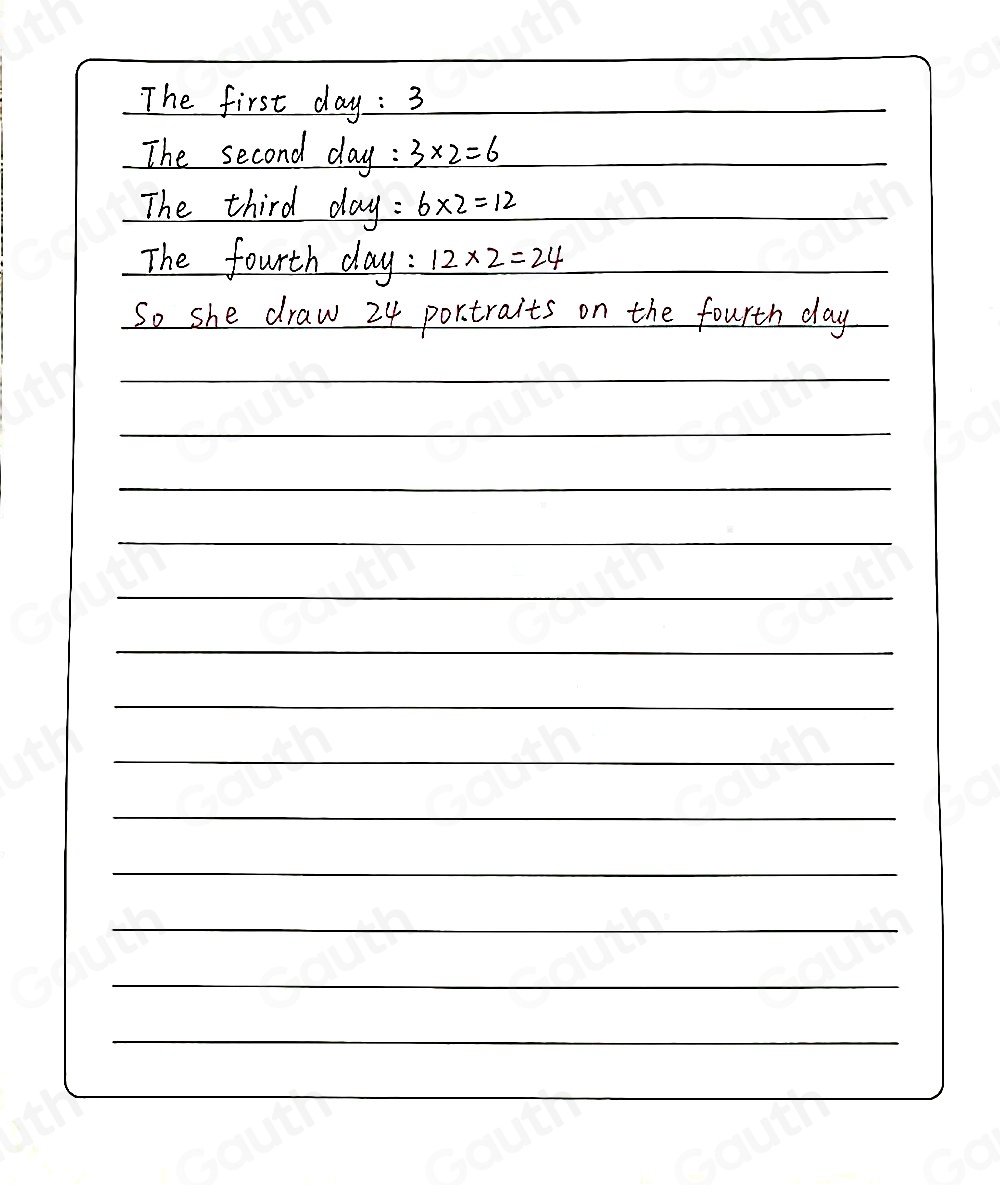 The first day : 3
The second day : 3×2=6
The third day : 6×2=12
The fourth day : 12×2=24
So she draw 24 portraits on the fourth day